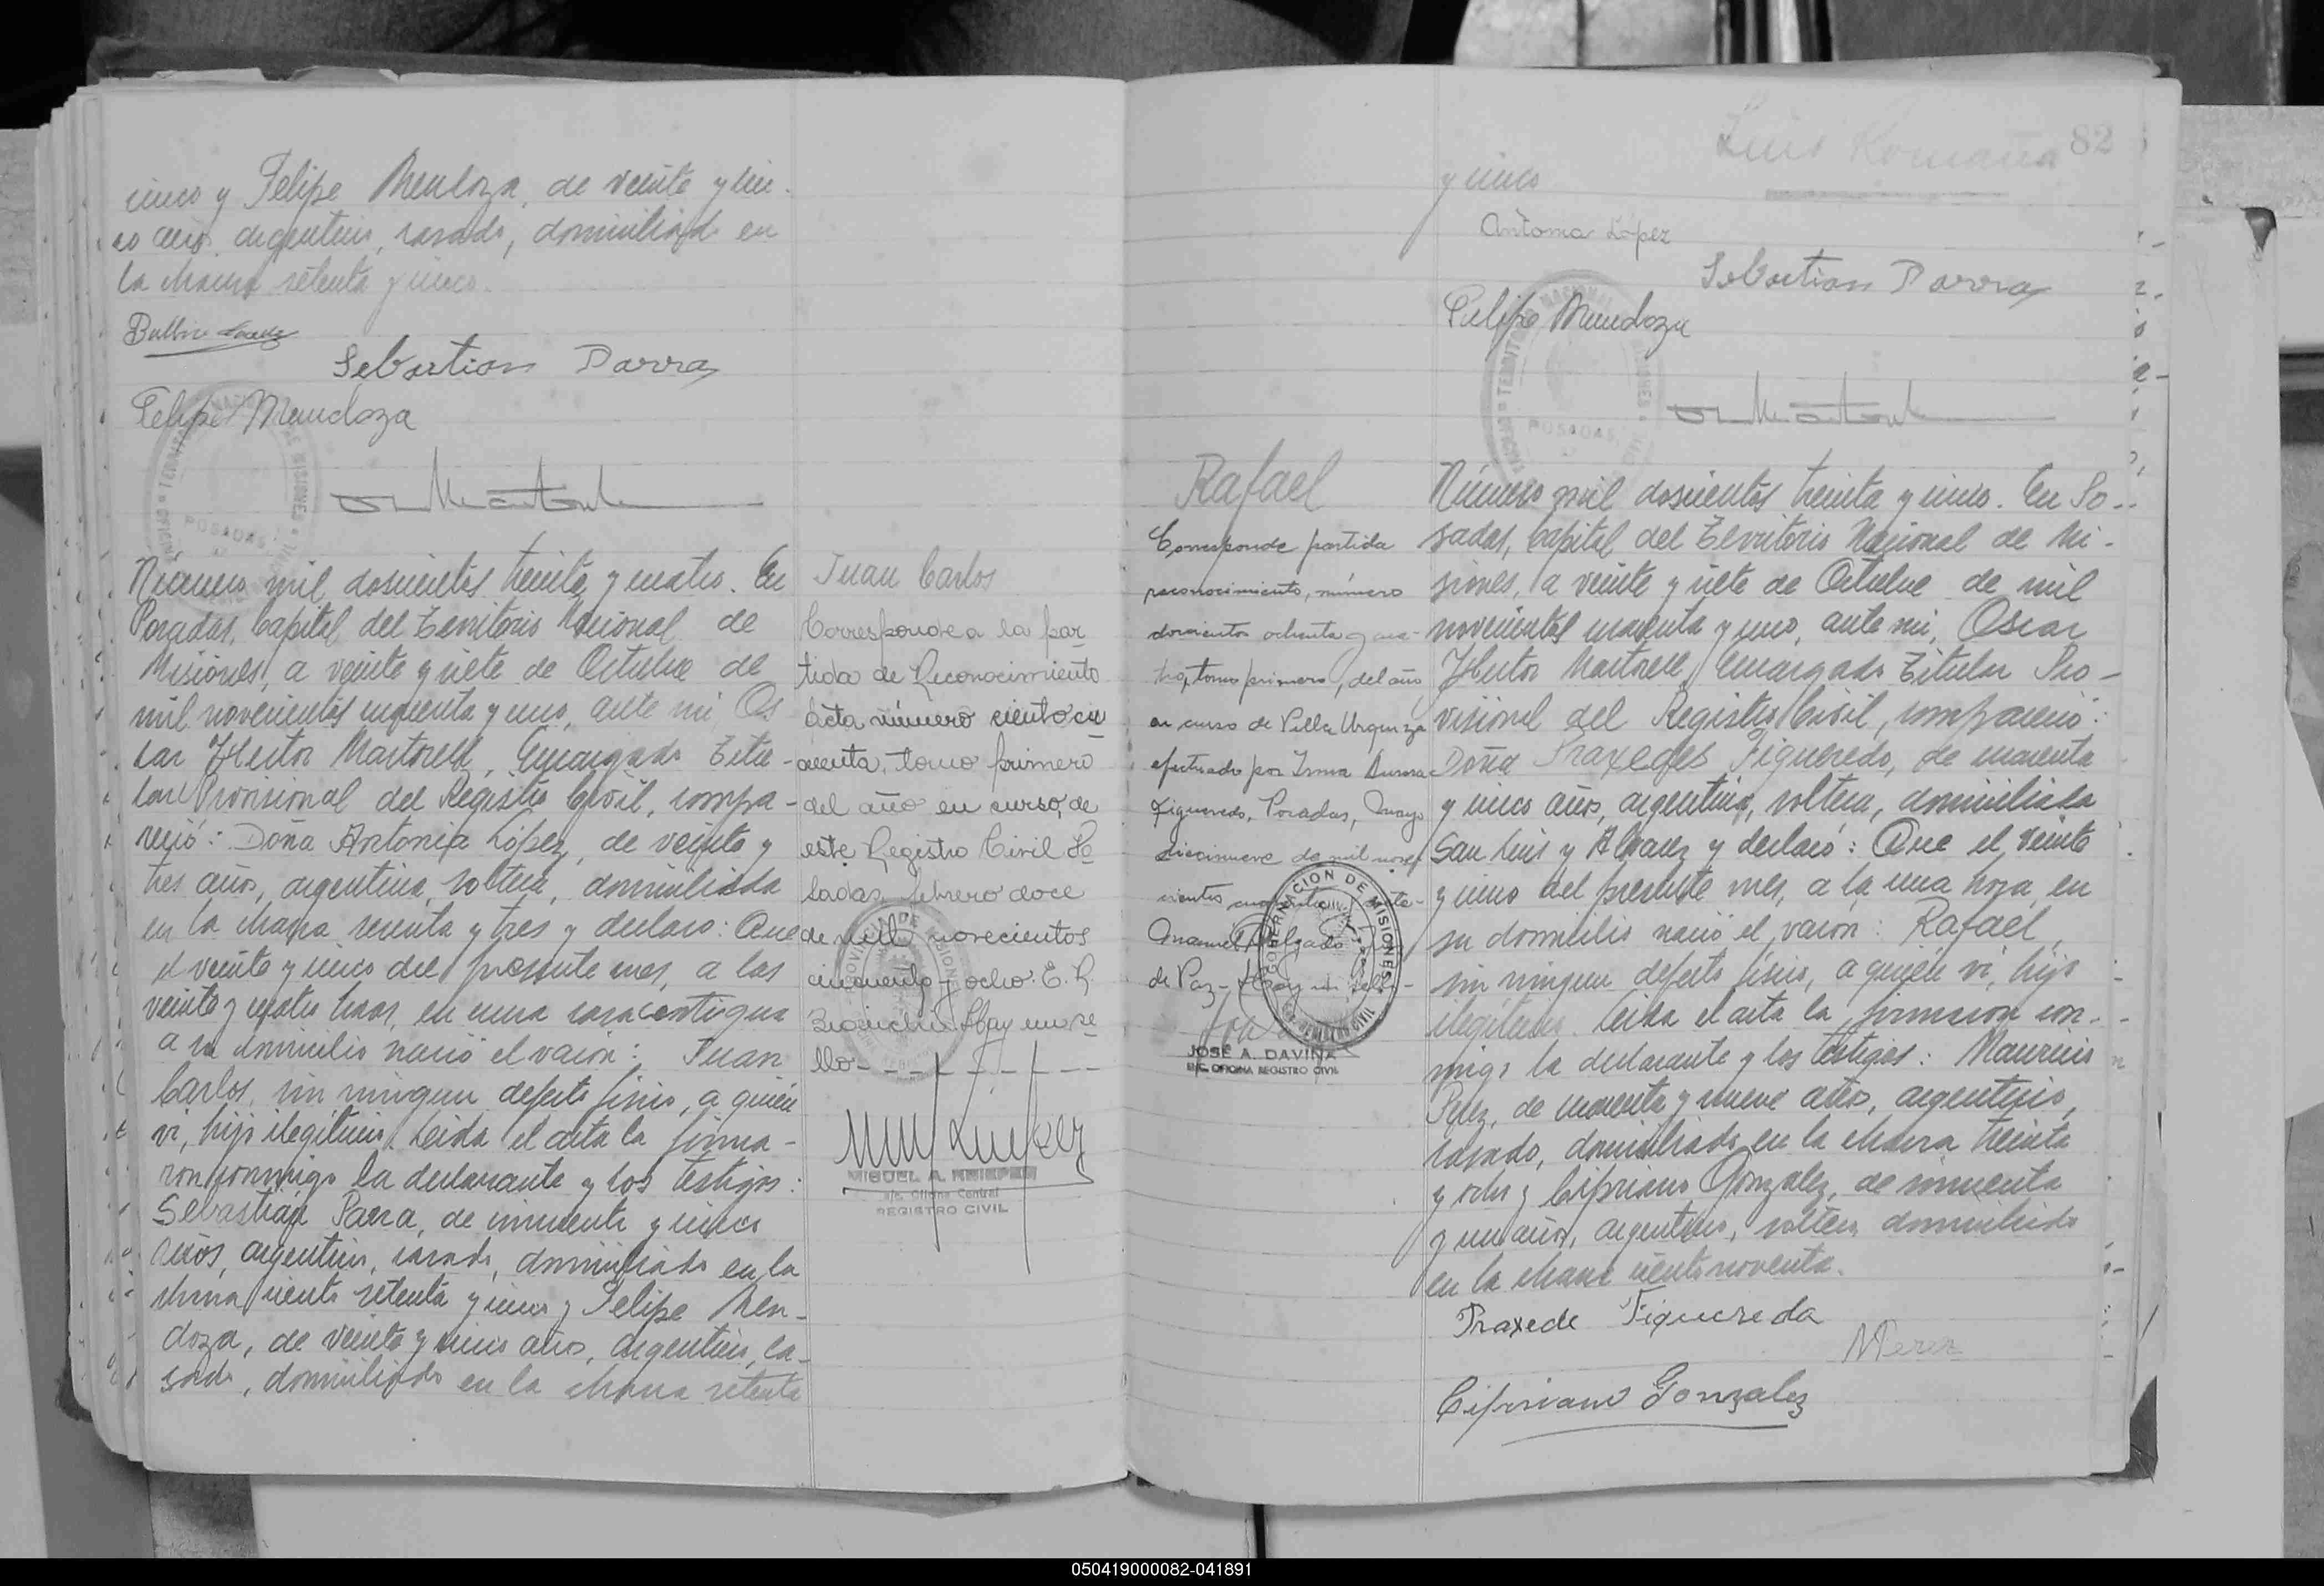 cinco y Felipe Mendoza, de veinte y cin-
co años, argentino, casado, domiciliado en
la chacra setenta y cinco.
Sebastian Parra
Felipe Mendoza
POSADAS
Número mil doscientos treinta y cuatro. En
Posadas, Capital del Territorio Nacional de
Misiones, a veinte y siete de Octubre de
mil novecientos cuarenta y uno, ante mi, Os
car Hector Martorell, Encargado Titu-
lar Provisional del Registro Civil, compa-
reció: Doña Antonia López, de veinte y
tres años, argentina, soltera, domiciliada
en la chacra sesenta y tres y declaró: Que
el veinte y cinco del presente mes, a las
veinte y cuatro horas, en una casa contigua
a su domicilio nació el varón: Juan
Carlos, sin ningun defecto físico, a quién
ví, hijo ilegítimo. Leída el acta la firma-
ron conmigo la declarante y los testigos:
Sebastián Parra, de cincuenta y cinco
años, argentino, casado, domiciliado en la
chacra ciento setenta y cinco y Felipe Men-
doza, de veinte y cinco años, argentino, ca-
sado, domiciliado en la chacra setenta
Juan Carlos
Corresponde a la par
tida de Reconocimiento
acta número ciento cin
cuenta, tomo primero
del año en curso, de
este Registro Civil Po
sadas, febrero doce
de mil novecientos
cincuenta y ocho. E. R.
Hay un se
llo
MIGUEL A. KNIEPER
e/c. Oficina Central
REGISTRO CIVIL
Luis Romaña
82
y cinco
Antonia López
Sebastian Parra
Felipe Mendoza
POSADAS
Rafael
Corresponde partida
reconocimiento, número
doscientos ochenta y cua-
tro, tomo primero, del año
en curso de Villa Urquiza
efectuado por Irma Aurora
Figueredo, Posadas, Mayo
diecinueve de mil nove-
cientos
Manuel Delgado
de Paz - Hay un sello -
GOBERNACION DE MISIONES
JOSÉ A. DAVIÑA
E/C. OFICINA REGISTRO CIVIL
Número mil doscientos treinta y cinco. En Po-
sadas, Capital del Territorio Nacional de Mi-
siones, a veinte y siete de Octubre de mil
novecientos cuarenta y uno, ante mi, Oscar
Hector Martorell, Encargado Titular Pro-
visional del Registro Civil, compareció:
Doña Praxedes Figueredo, de cuarenta
y cinco años, argentina, soltera, domiciliada
San Luis y Alvarez y declaró: Que el veinte
y cinco del presente mes, a la una hora, en
su domicilio nació el varón: Rafael,
sin ningun defecto físico, a quién ví, hijo
ilegítimo. Leída el acta la firmaron con-
migo la declarante y los testigos: Mauricio
Perez, de cuarenta y nueve años, argentino,
casado, domiciliado en la chacra treinta
y ocho y Cipriano Gonzalez, de cincuenta
y un años, argentino, soltero, domiciliado
en la chacra ciento noventa.
Praxede Figuereda
MPerez
Cipriano Gonzalez
050419000082-041891